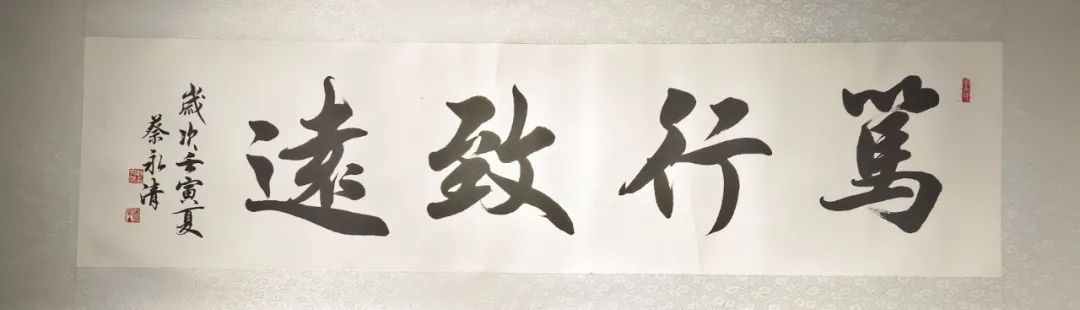 篤行致遠
歲次壬寅夏
蔡永清